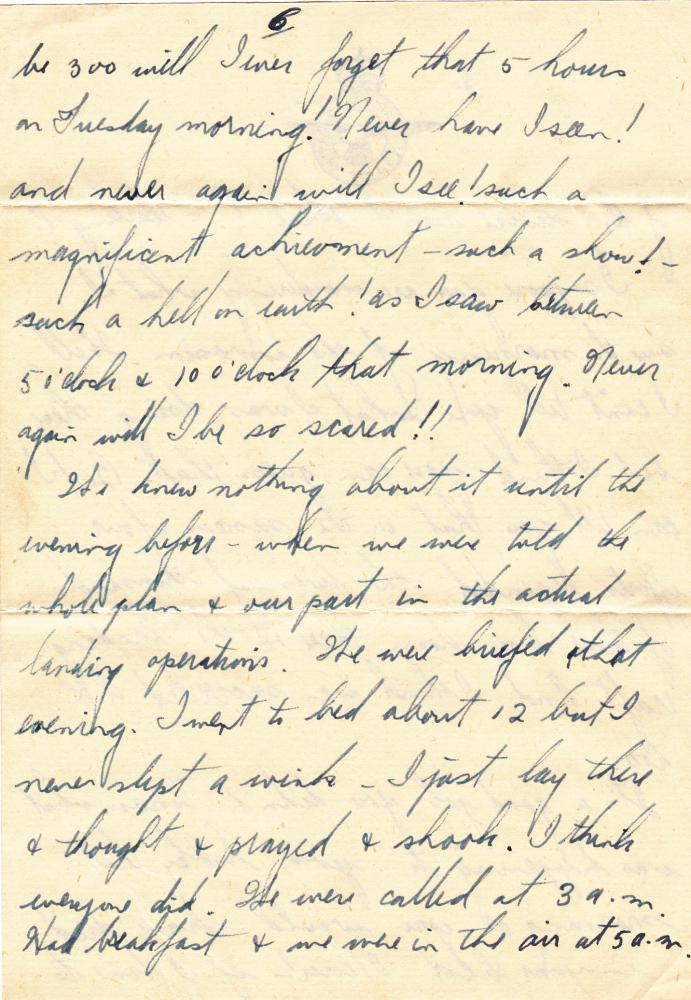 6
be 300 will I ever forget that 5 hours
on Tuesday morning! Never have I seen!
and never again will I see! such a
magnificent achievment - such a show! -
such a hell on earth! as I saw between
5 o'clock & 10 o'clock that morning. Never
again will I be so scared!!
We knew nothing about it until the
evening before - when we were told the
whole plan & our part in the actual
landing operations. We were briefed that
evening. I went to bed about 12 but I
never slept a wink - I just lay there
& thought & prayed & shook. I think
everyone did. We were called at 3 a.m.
Had breakfast & we were in the air at 5 a.m.